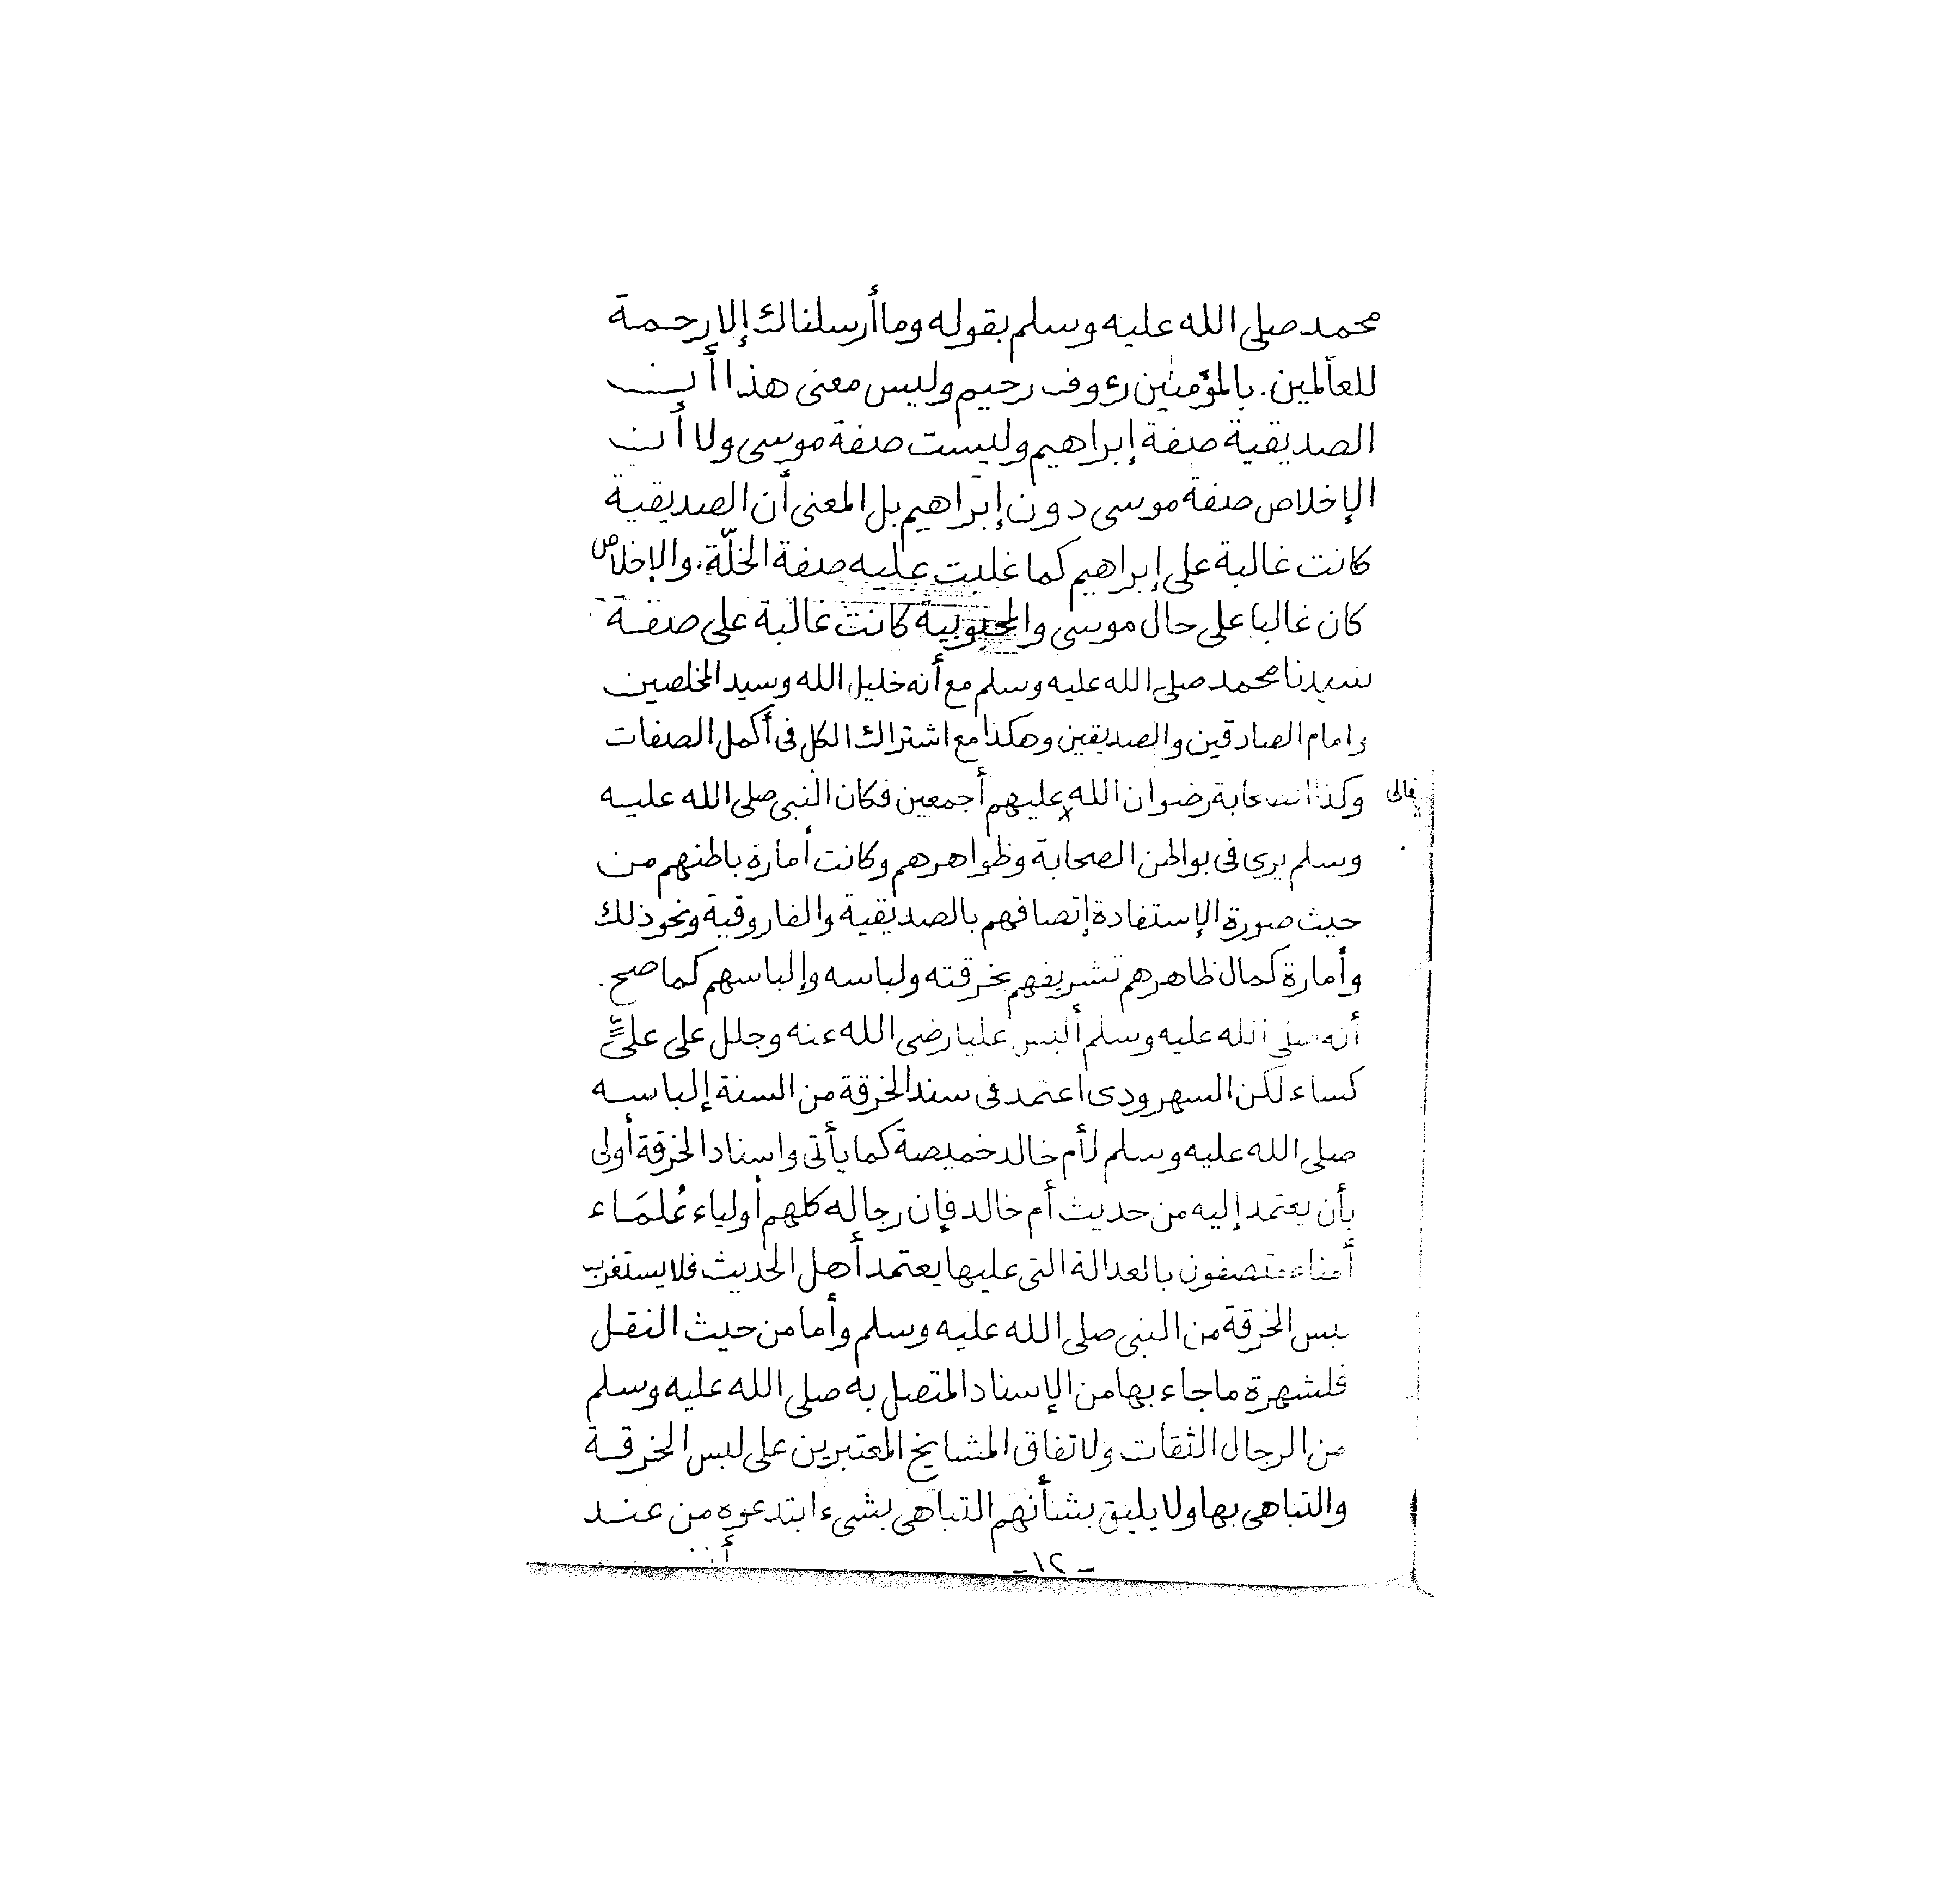 محمد صلى الله عليه وسلم بقوله وما أرسلناك إلا رحمة
للعالمين. بالمؤمنين رءوف رحيم وليس معنى هذا أن
الصديقية صفة إبراهيم وليست صفة موسى ولا أن
الإخلاص صفة موسى دون إبراهيم بل المعنى أن الصديقية
كانت غالبة على إبراهيم كما غلبت عليه صفة الخلّة. والإخلاص
كان غالبا على حال موسى والمحبوبية كانت غالبة على صفة
سيدنا محمد صلى الله عليه وسلم مع أنه خليل الله وسيد المخلصين
وامام الصادقين والصديقين وهكذا مع اشتراك الكل فى أكمل الصفات
وكذا الصحابة رضوان الله عليهم أجمعين فكان النبى صلى الله عليه
وسلم يربي فى بواطن الصحابة وظواهرهم وكانت أمارة باطنهم من
حيث صورة الإستفادة إتصافهم بالصديقية والفاروقية ونحو ذلك
وأمارة كمال ظاهرهم تشريفهم بخرقته ولباسه وإلباسهم كما صح.
أنه صلى الله عليه وسلم ألبس عليا رضى الله عنه وجلل على علىٍّ
كساء لكن السهرودى اعتمد فى سند الخرقة من السنة إلباسه
صلى الله عليه وسلم لأم خالد خميصة كما يأتى واسناد الخرقة أولى
بأن يعتمد إليه من حديث أم خالد فإن رجاله كلهم أولياء عُلمَاء
أمناء متصفون بالعدالة التى عليها يعتمد أهل الحديث فلا يستغرب
لبس الخرقة من النبى صلى الله عليه وسلم وأما من حيث النقل
فلشهرة ما جاء بها من الإسناد المتصل به صلى الله عليه وسلم
من الرجال الثقات ولاتفاق المشايخ المعتبرين على لبس الخرقة
والتباهى بها ولا يليق بشأنهم التباهى بشىء ابتدعوه من عند
-١٢-